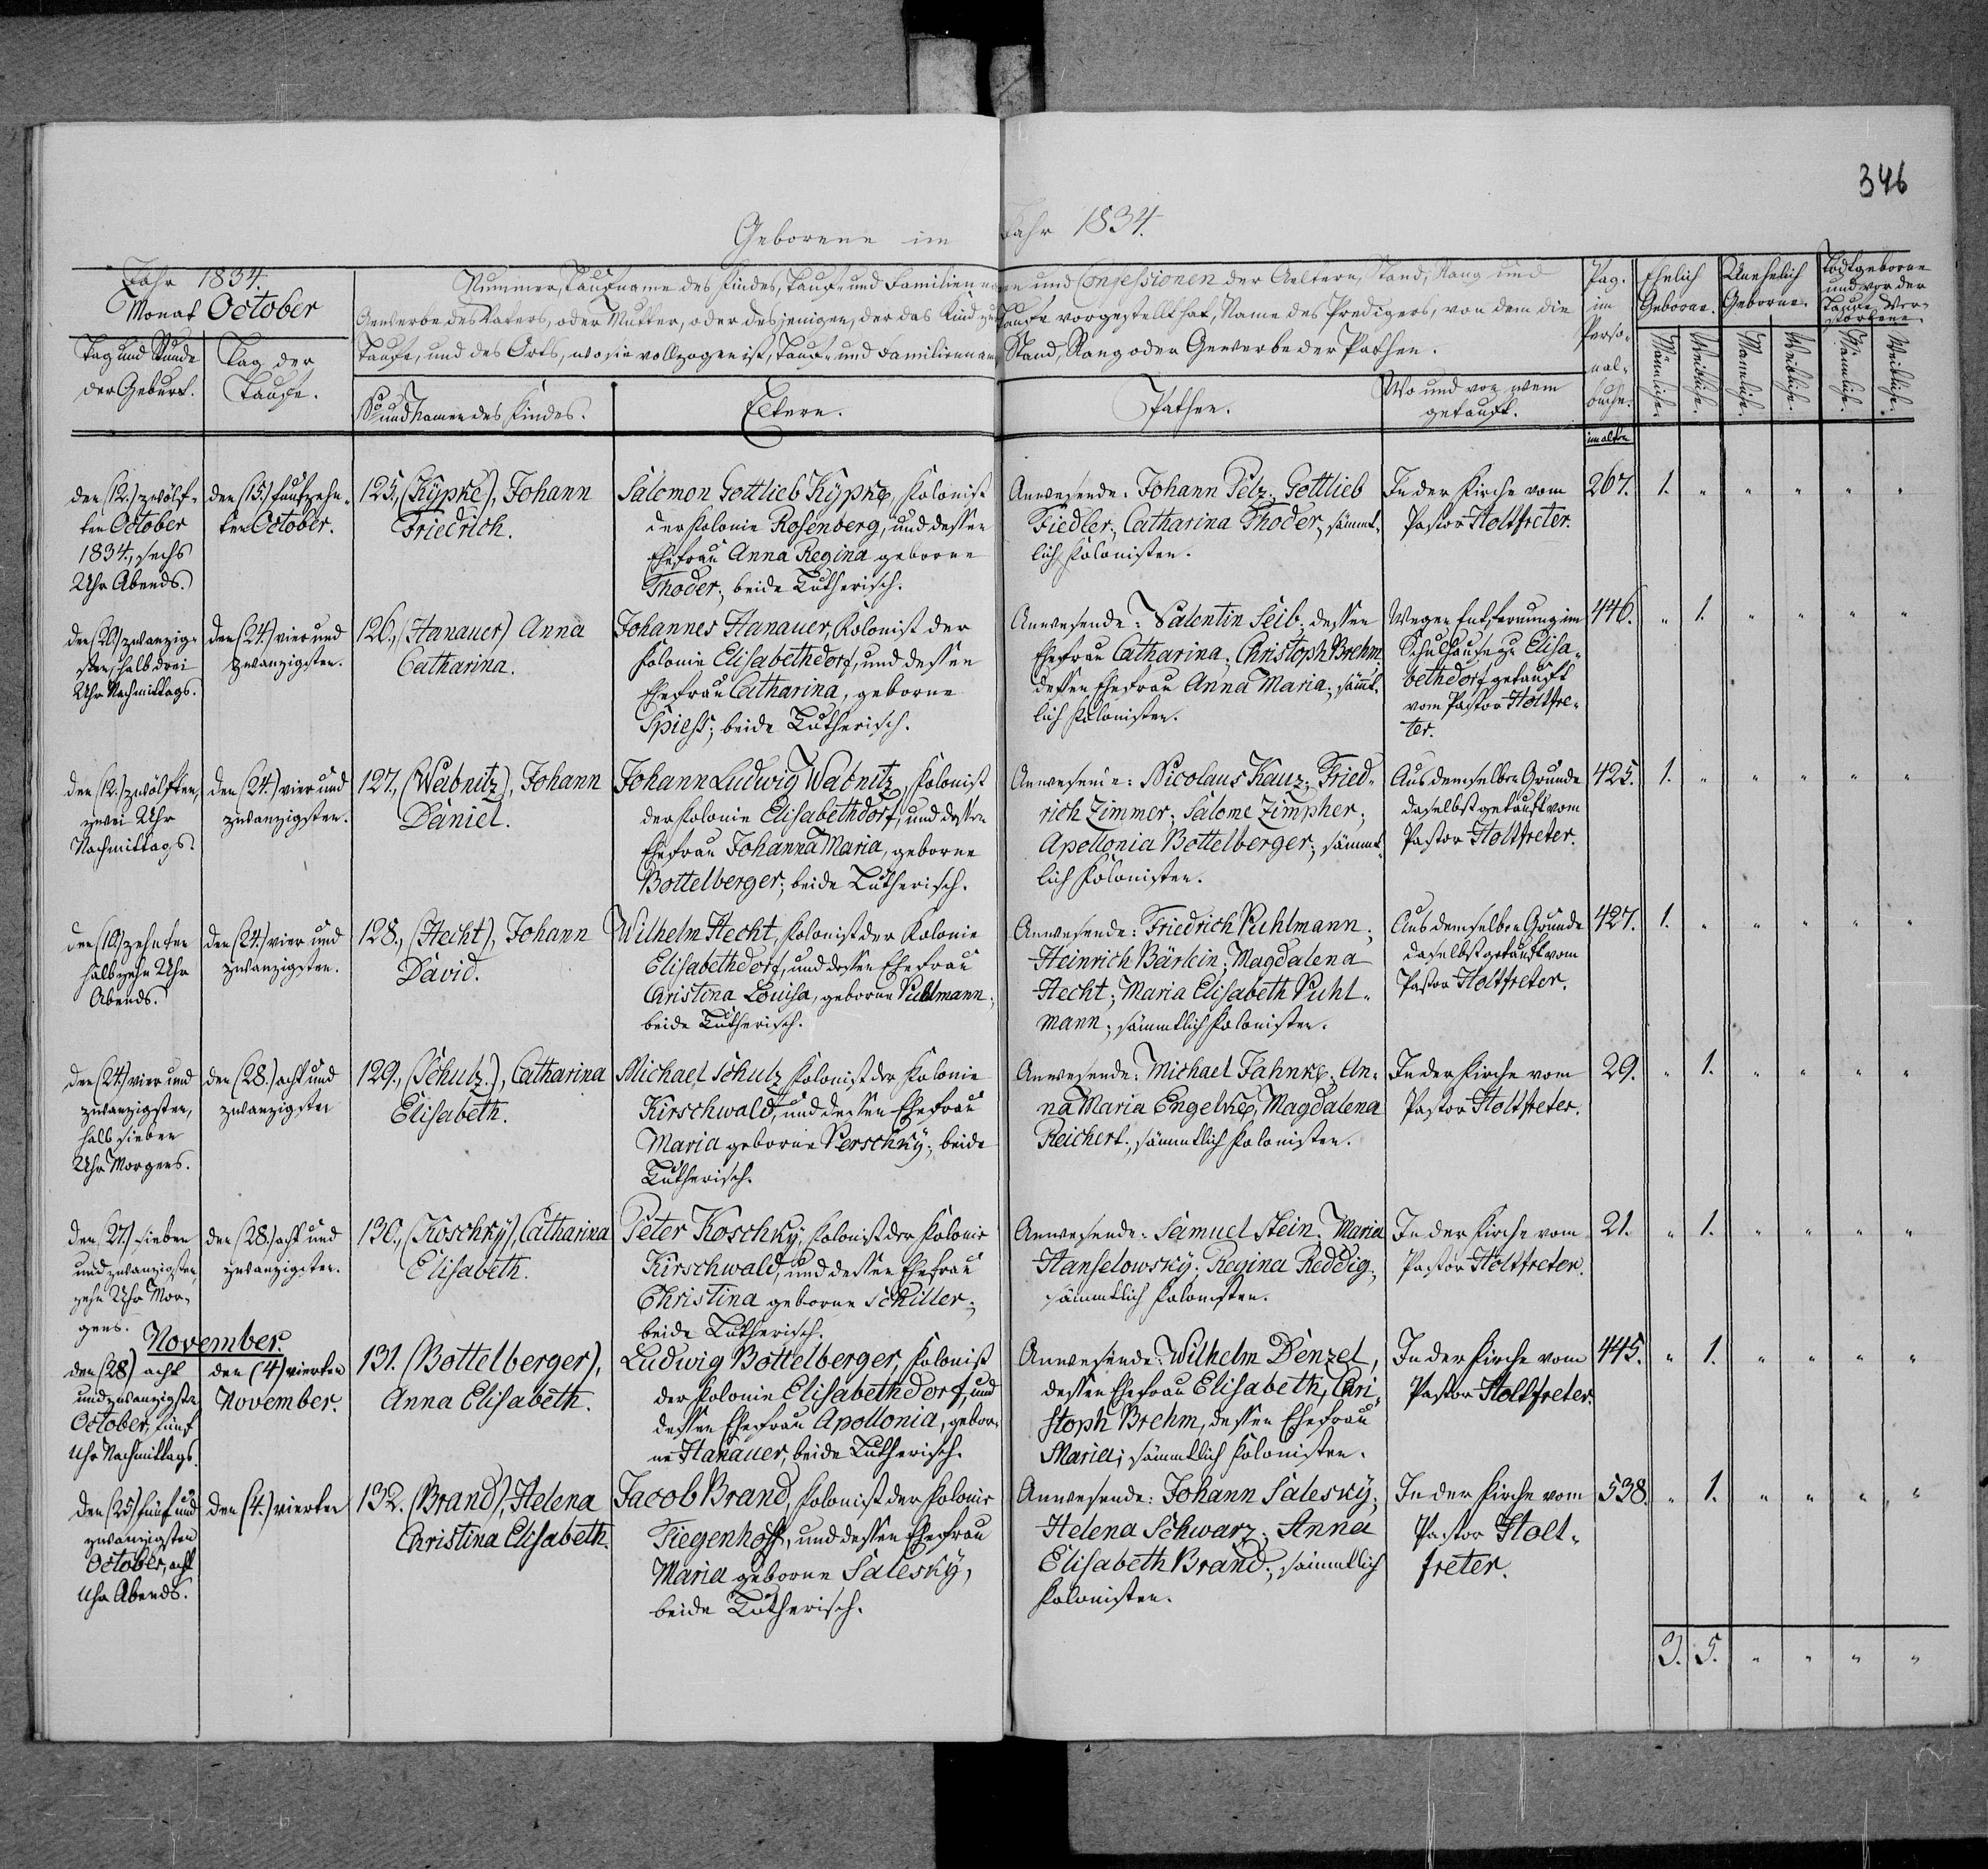 346
Geborene im Jahr 1834.
Jahr 1834.
Monat October
Tag und Stunde
der Geburt.
Tag der
Taufe.
Nummer, Taufname des Kindes, Tauf- und Familiennamen und Confessionen der Aeltern, Stand, Rang und
Gewerbe des Vaters, oder Mutter, oder desjenigen, der das Kind zur Taufe vorgestellt hat, Name des Predigers, von dem die
Taufe, und des Orts, wo sie vollzogen ist, Tauf- und Familiennamen, Stand, Rang oder Gewerbe der Pathen.
No und Namen des Kindes.
Eltern.
Pathen.
Wo und von wem
getauft.
Pag.
im
Perso-
nal-
buche.
im alten
Ehelich
Geborne.
Unehelich
Geborne.
Todtgeborne
und vor der
Taufe Ver-
storbene
Männliche.
Weibliche.
Männliche.
Weibliche.
Männliche.
Weibliche.
den (12.) zwölf-
ten October
1834., sechs
Uhr Abends.
den (15.) funfzehn-
ten October.
125., (Kypke), Johann
Friedrich.
Salomon Gottlieb Kypke, Kolonist
der Kolonie Rosenberg, und dessen
Ehefrau Anna Regina geborne
Thoder; beide Lutherisch.
Anwesende: Johann Pelz; Gottlieb
Fiedler; Catharina Thoder; sämmt-
lich Kolonisten.
In der Kirche vom
Pastor Holtfreter.
267. 1. " " " " "
den (20.) zwanzig-
sten, halb drei
Uhr Nachmittags.
den (24.) vier und
zwanzigsten.
126., (Hanauer) Anna
Catharina.
Johannes Hanauer, Kolonist der
Kolonie Elisabethdorf, und dessen
Ehefrau Catharina, geborne
Spiess; beide Lutherisch.
Anwesende: Valentin Seib; dessen
Ehefrau Catharina; Christoph Brehm;
dessen Ehefrau Anna Maria; sämt-
lich Kolonisten.
Wegen Entfernung im
Schulhause zu Elisa-
bethdorf getauft
vom Pastor Holtfre-
ter.
446. " 1. " " " "
den (12.) zwölften,
zwei Uhr
Nachmittags.
den (24.) vier und
zwanzigsten.
127., (Wabnitz), Johann
Daniel.
Johann Ludwig Wabnitz, Kolonist
der Kolonie Elisabethdorf, und dessen
Ehefrau Johanna Maria, geborne
Bottelberger; beide Lutherisch.
Anwesende: Nicolaus Kauz; Fried-
rich Zimmer; Salome Zimpher;
Apollonia Bottelberger; sämmt-
lich Kolonisten.
Aus demselben Grunde
daselbst getauft vom
Pastor Holtfreter.
425. 1. " " " " "
den (10.) zehnten
halb zehn Uhr
Abends.
den (24.) vier und
zwanzigsten.
128., (Hecht), Johann
David.
Wilhelm Hecht, Kolonist der Kolonie
Elisabethdorf, und dessen Ehefrau
Christina Louisa, geborne Puhlmann;
beide Lutherisch.
Anwesende: Friedrich Puhlmann;
Heinrich Bärlein; Magdalena
Hecht; Maria Elisabeth Puhl-
mann; sämmtlich Kolonisten.
Aus demselben Grunde
daselbst getauft vom
Pastor Holtfreter.
427. 1. " " " " "
den (24.) vier und
zwanzigsten,
halb sieben
Uhr Morgens.
den (28.) acht und
zwanzigsten
129., (Schulz.), Catharina
Elisabeth.
Michael Schulz, Kolonist der Kolonie
Kirschwald, und dessen Ehefrau
Maria geborne Perschky; beide
Lutherisch.
Anwesende: Michael Jahnke; An-
na Maria Engelke; Magdalena
Reichert; sämmtlich Kolonisten.
In der Kirche vom
Pastor Holtfreter.
29. " 1. " " " "
den (27.) sieben
und zwanzigsten,
zehn Uhr Mor-
gens.
den (28.) acht und
zwanzigsten.
130., (Koschky), Catharina
Elisabeth.
Peter Koschky, Kolonist der Kolonie
Kirschwald, und dessen Ehefrau
Christina geborne Schiller;
beide Lutherisch.
Anwesende: Samuel Stein; Maria
Hanselowsky; Regina Reddig;
sämmtlich Kolonisten.
In der Kirche vom
Pastor Holtfreter.
21. " 1. " " " "
November.
den (28) acht
und zwanzigsten
October, fünf
Uhr Nachmittags.
den (4) vierten
November.
131. (Bottelberger),
Anna Elisabeth.
Ludwig Bottelberger, Kolonist
der Kolonie Elisabethdorf, und
dessen Ehefrau Apollonia, gebor-
ne Hanauer, beide Lutherisch.
Anwesende: Wilhelm Denzel,
dessen Ehefrau Elisabeth, Chri-
stoph Brehm, dessen Ehefrau
Maria; sämmtlich Kolonisten.
In der Kirche vom
Pastor Holtfreter.
445. " 1. " " " "
den (25) fünf und
zwanzigsten
October, acht
Uhr Abends.
den (4.) vierten
132. (Brand), Helena
Christina Elisabeth.
Jacob Brand, Kolonist der Kolonie
Tiegenhoff, und dessen Ehefrau
Maria geborne Salesky,
beide Lutherisch.
Anwesende: Johann Salesky;
Helena Schwarz; Anna
Elisabeth Brand; sämmtlich
Kolonisten.
In der Kirche vom
Pastor Holt-
freter.
538. " 1. " " " "
3. 5. " " " "